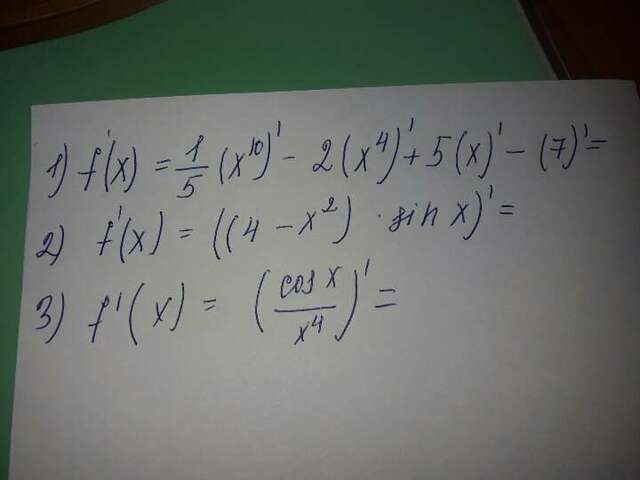 1) f'(x) = 1/5 (x^10)' - 2(x^4)' + 5(x)' - (7)' =
2) f'(x) = ((4 - x^2) · sin x)' =
3) f'(x) = (cos x / x^4)' =